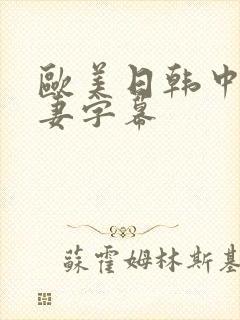 歐美日韩中
妻字幕
蘇霍姆林斯基